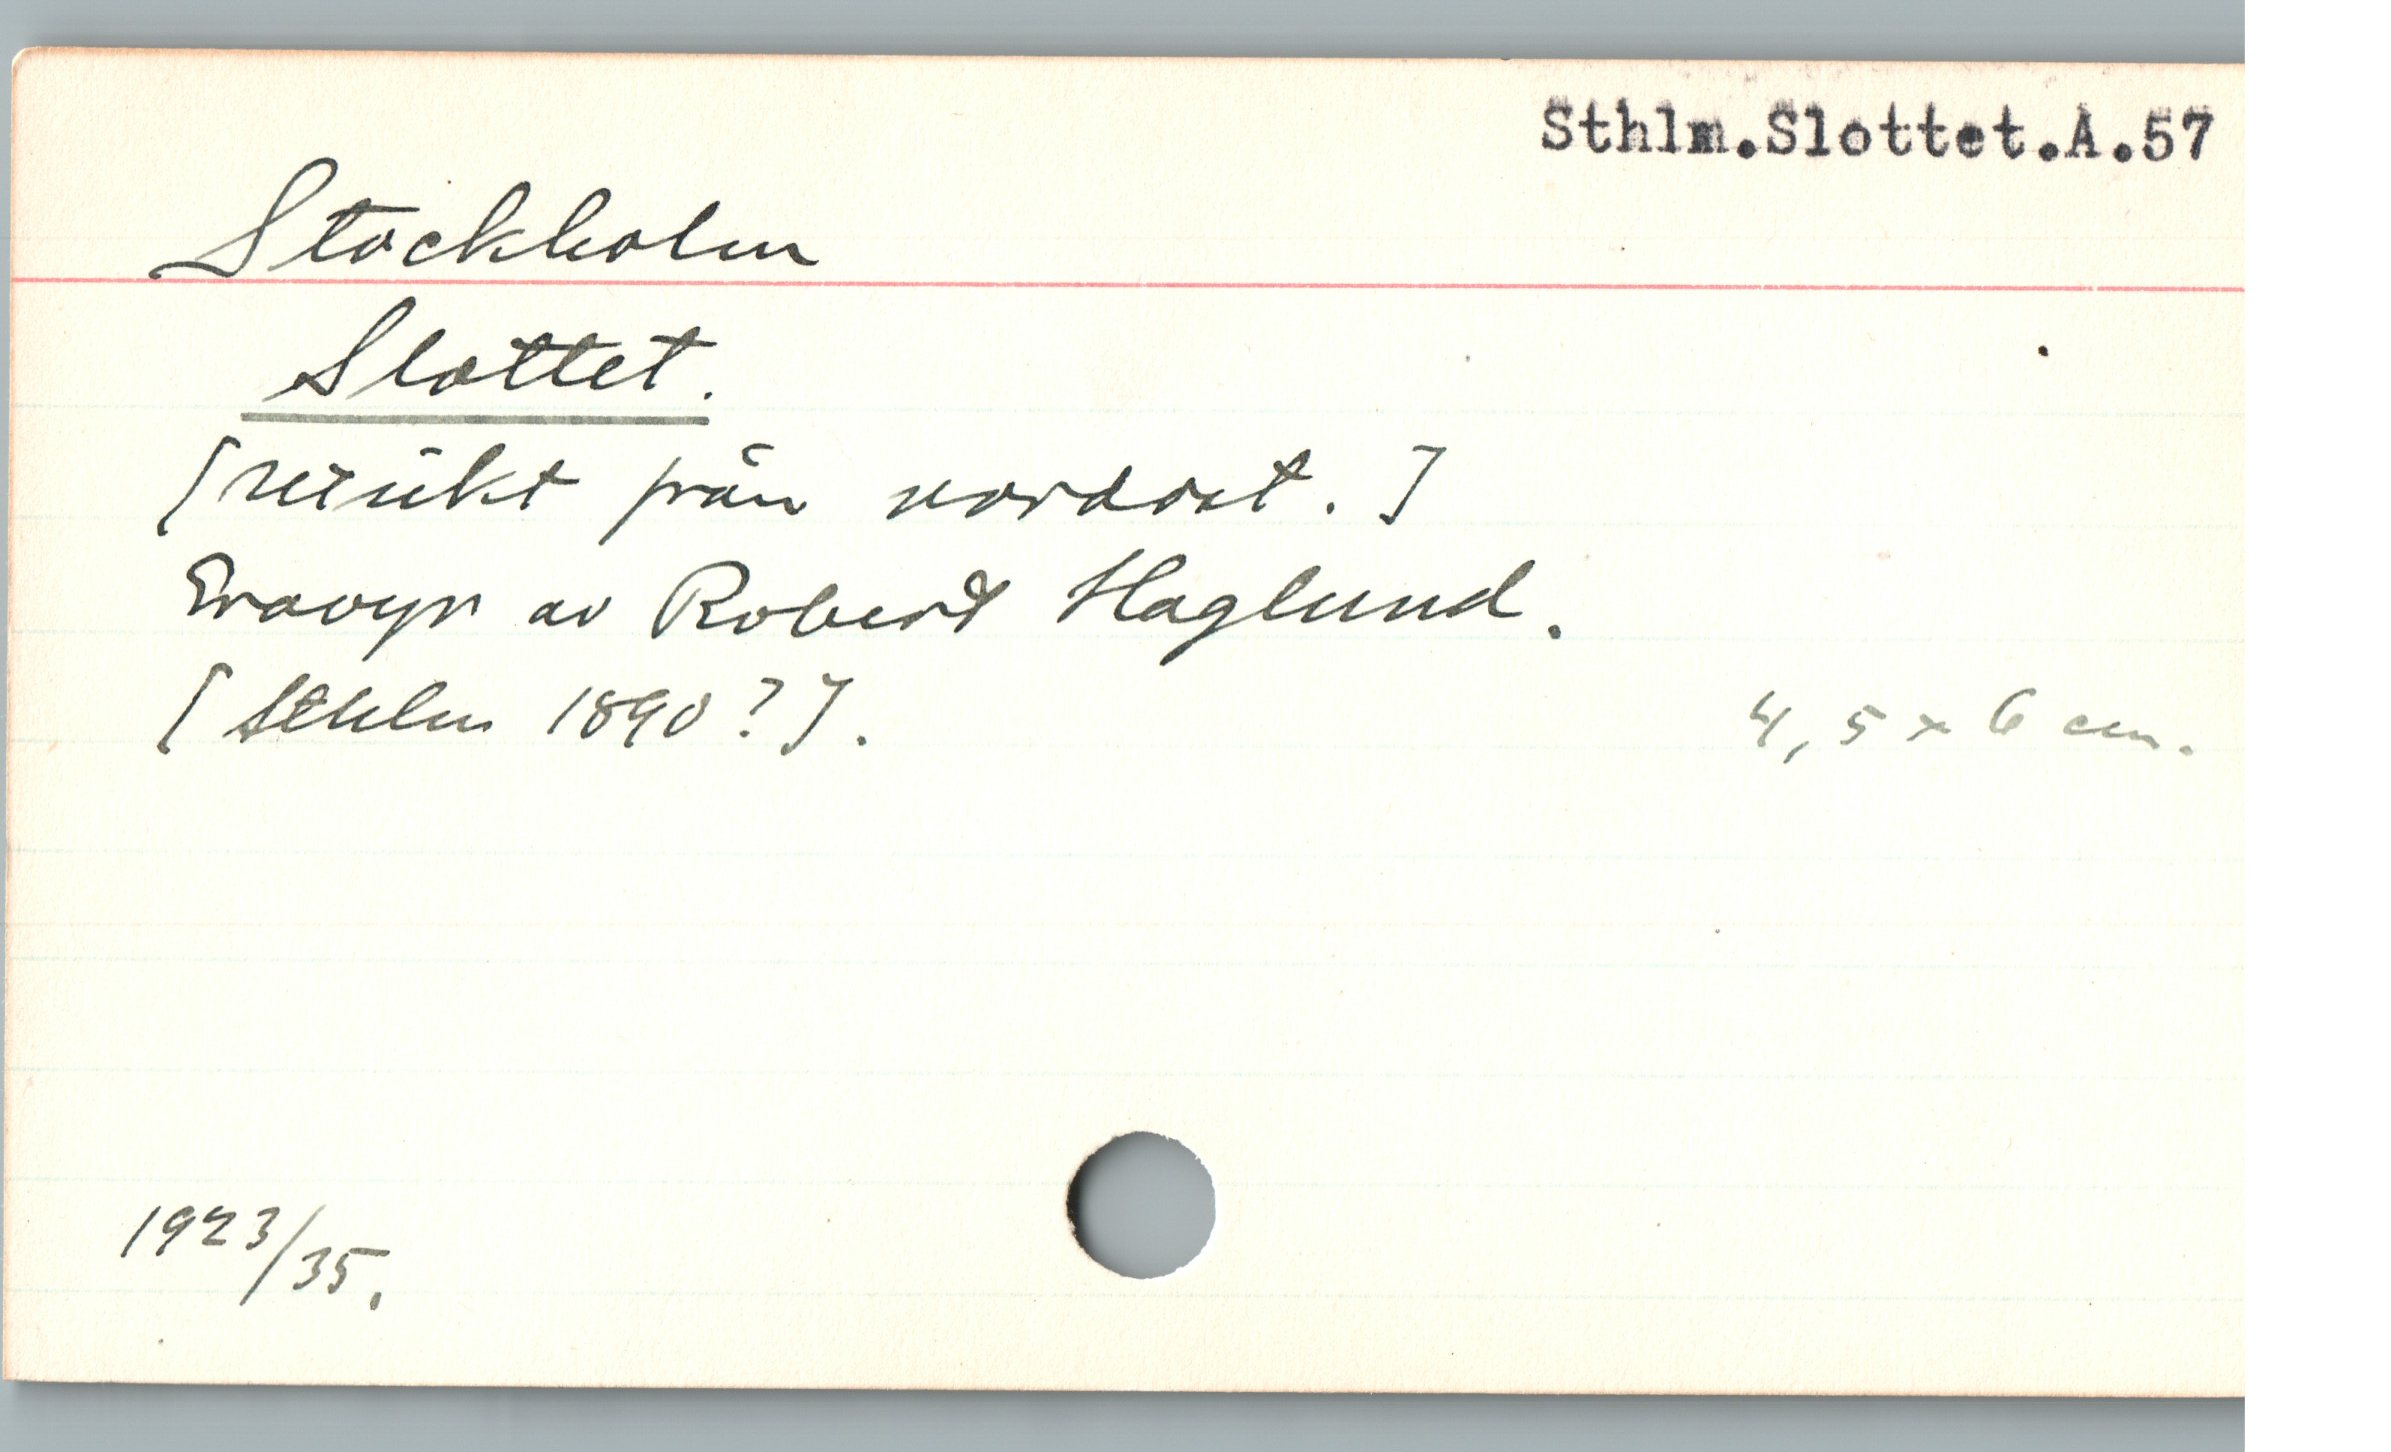 Sthlm.Slottet.A.57
Stockholm
Slottet.
[utsikt från nordost.]
Gravyr av Robert Haglund.
[Sthlm 1890?].
4,5 x 6 cm.
1923/35.